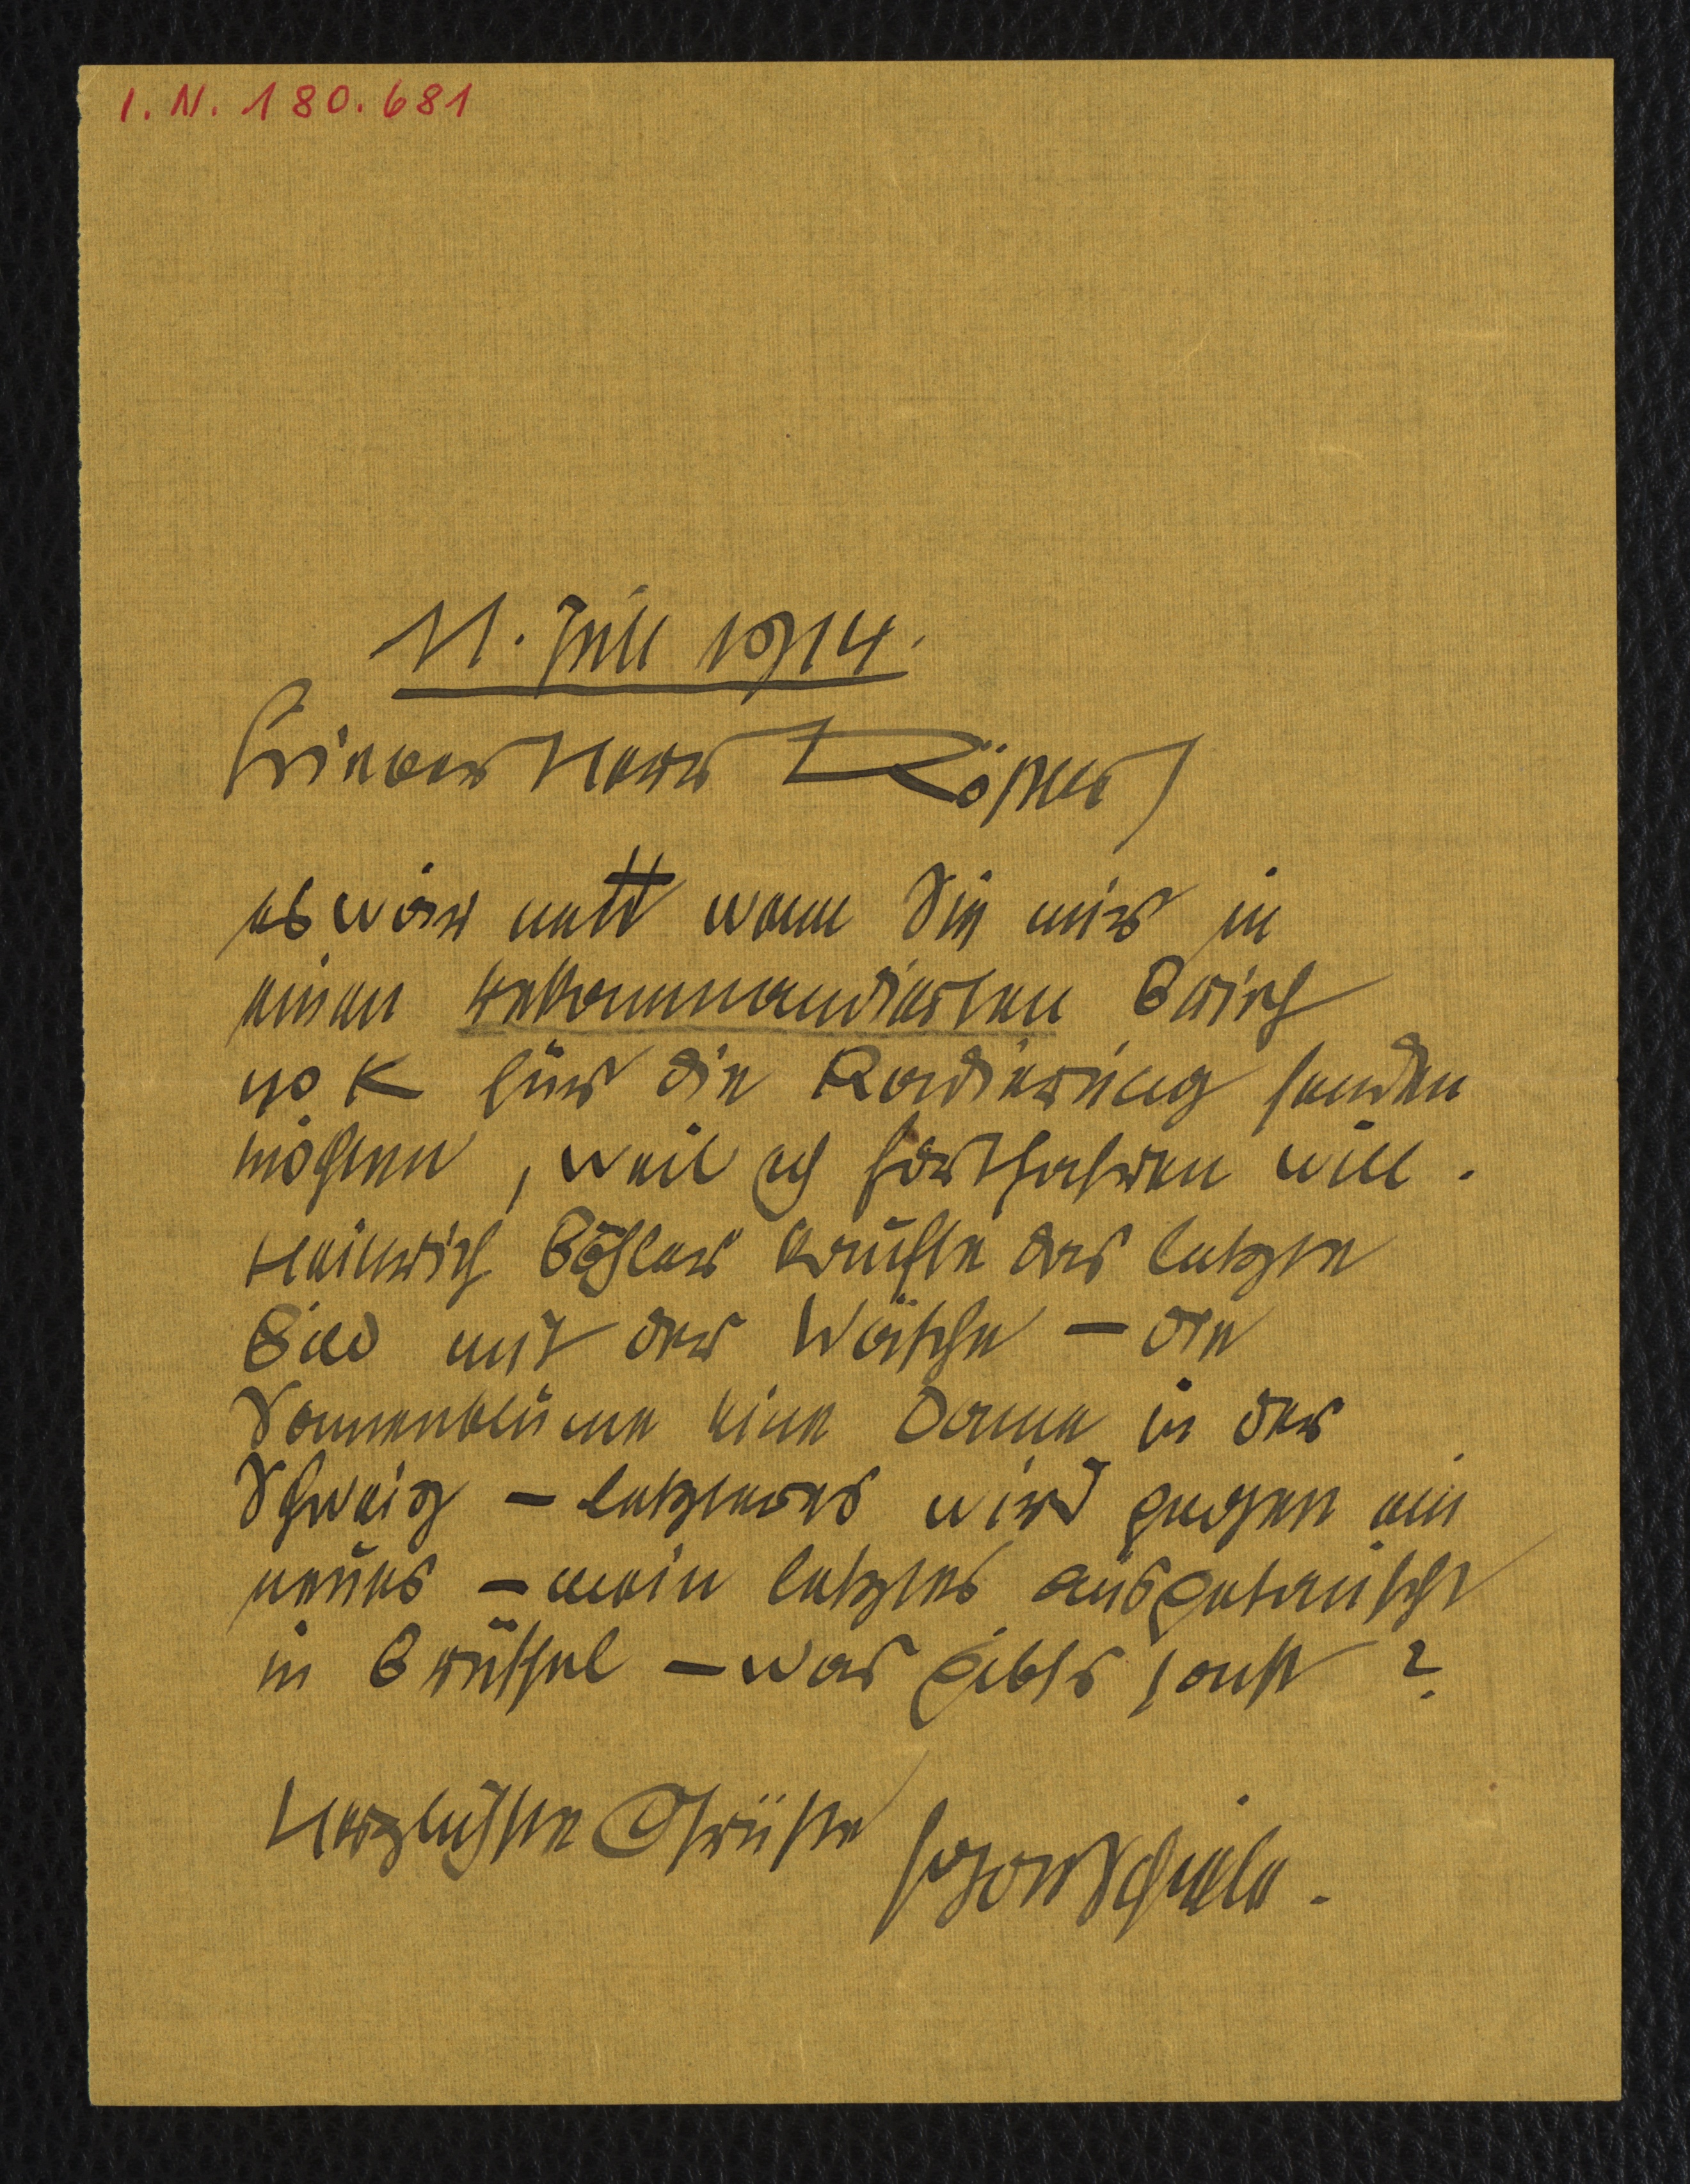 I. N. 180.681
11. Juli 1914.
Lieber Herr Rößler!
es wär nett wenn Sie mir in
einen rekommandierten Brief
40 K für die Radierung senden
möchten, weil ich fortfahren will.
Heinrich Böhler kaufte das letzte
Bild mit der Wäsche – die
Sonnenblume eine Dame in der
Schweiz – letzteres wird gegen ein
neues – mein letztes ausgetauscht
in Brüssel – was gibts sonst?
Herzlichste Grüße Egon Schiele.